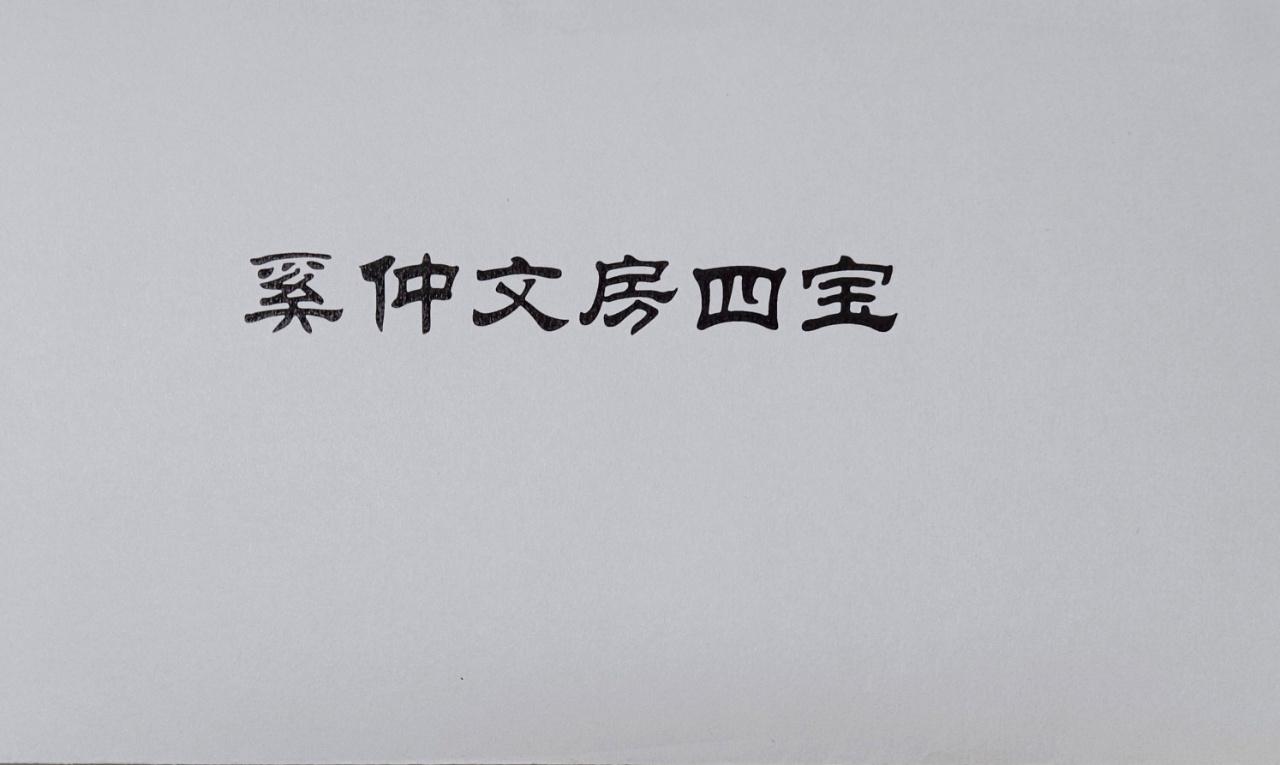 奚仲文房四宝